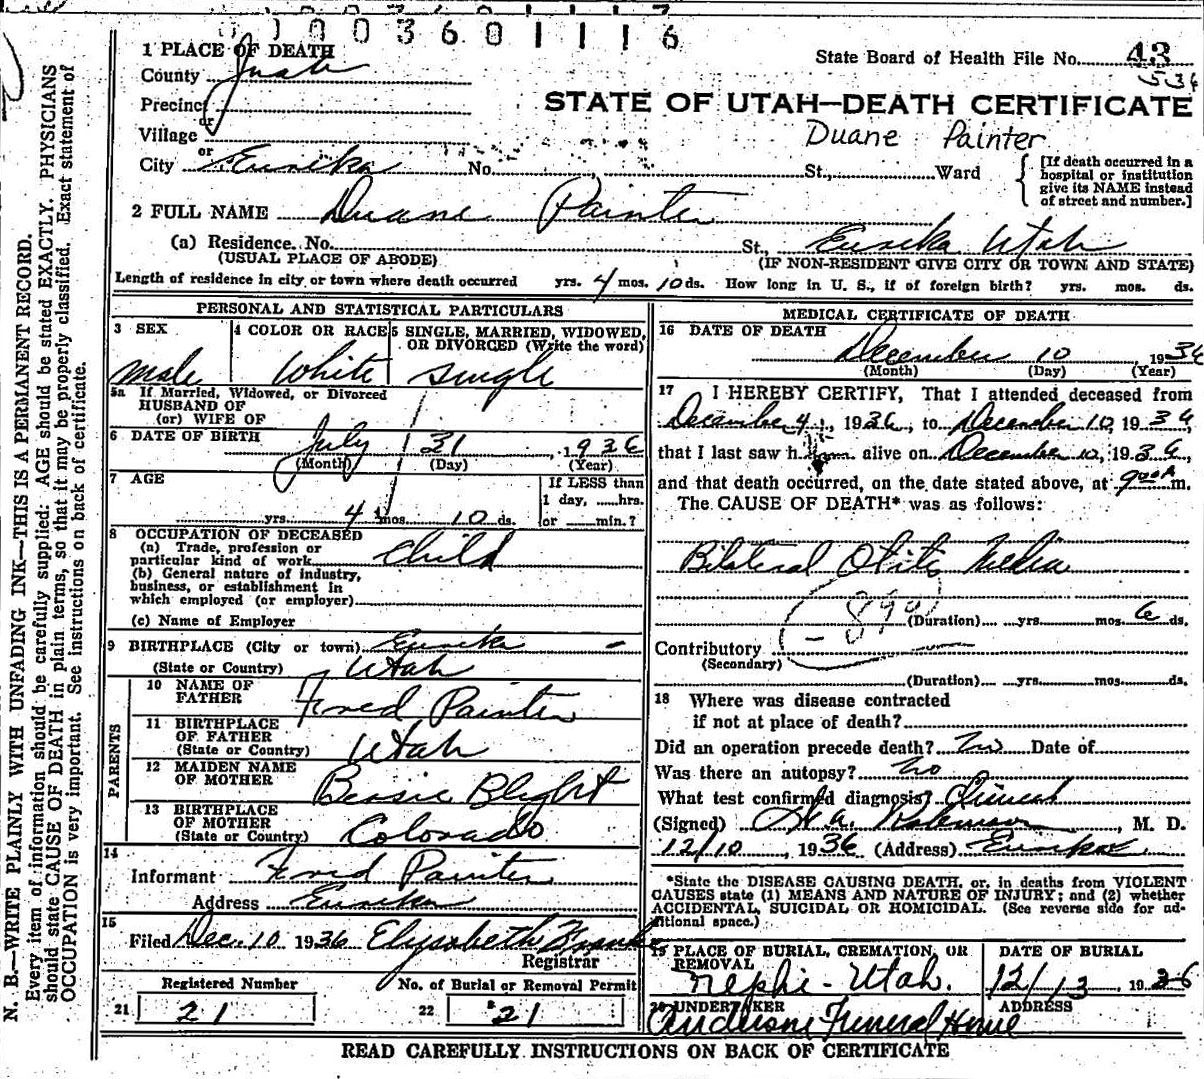 0 0 0 3 6 0 1 1 1 6
1 PLACE OF DEATH
State Board of Health File No. 43
536
County Juab
Precinct
or
Village
or
City Eureka No. St., Ward
STATE OF UTAH—DEATH CERTIFICATE
Duane Painter
[If death occurred in a hospital or institution give its NAME instead of street and number.]
2 FULL NAME Duane Painter
(a) Residence. No. St., Eureka Utah
(USUAL PLACE OF ABODE) (IF NON-RESIDENT GIVE CITY OR TOWN AND STATE)
Length of residence in city or town where death occurred yrs. 4 mos. 10 ds. How long in U. S., if of foreign birth? yrs. mos. ds.
PERSONAL AND STATISTICAL PARTICULARS
3 SEX 4 COLOR OR RACE 5 SINGLE, MARRIED, WIDOWED, OR DIVORCED (Write the word)
male White Single
5a If Married, Widowed, or Divorced
HUSBAND OF
(or) WIFE OF
6 DATE OF BIRTH July 31, 1936
(Month) (Day) (Year)
7 AGE
If LESS than
1 day, hrs.
yrs. 4 mos. 10 ds. or min.?
8 OCCUPATION OF DECEASED
(a) Trade, profession or
particular kind of work child
(b) General nature of industry,
business, or establishment in
which employed (or employer)
(c) Name of Employer
9 BIRTHPLACE (City or town) Eureka
(State or Country) Utah
PARENTS
10 NAME OF
FATHER Fred Painter
11 BIRTHPLACE
OF FATHER
(State or Country) Utah
12 MAIDEN NAME
OF MOTHER Bessie Blight
13 BIRTHPLACE
OF MOTHER
(State or Country) Colorado
14
Informant Fred Painter
Address Eureka
15
Filed Dec. 10 1936 Elysabeth
Registrar
Registered Number No. of Burial or Removal Permit
21 21 22 21
MEDICAL CERTIFICATE OF DEATH
16 DATE OF DEATH
December 10, 1936
(Month) (Day) (Year)
17 I HEREBY CERTIFY, That I attended deceased from
December 4, 1936, to December 10, 1936,
that I last saw him alive on December 10, 1936,
and that death occurred, on the date stated above, at 9 00 A m.
The CAUSE OF DEATH* was as follows:
Bilateral Otitis Media
(Duration) yrs. mos. 6 ds.
Contributory
(Secondary)
(Duration) yrs. mos. ds.
18 Where was disease contracted
if not at place of death?
Did an operation precede death? No Date of
Was there an autopsy? No
What test confirmed diagnosis? Clinical
(Signed) , M. D.
12/10, 1936 (Address) Eureka
*State the DISEASE CAUSING DEATH, or, in deaths from VIOLENT
CAUSES state (1) MEANS AND NATURE OF INJURY; and (2) whether
ACCIDENTAL, SUICIDAL OR HOMICIDAL. (See reverse side for ad-
ditional space.)
19 PLACE OF BURIAL, CREMATION, OR REMOVAL DATE OF BURIAL
Nephi - Utah. 12/13, 1936
20 UNDERTAKER ADDRESS
Anderson Funeral Home
READ CAREFULLY INSTRUCTIONS ON BACK OF CERTIFICATE
N. B.—WRITE PLAINLY WITH UNFADING INK—THIS IS A PERMANENT RECORD.
Every item of information should be carefully supplied: AGE should be stated EXACTLY. PHYSICIANS
should state CAUSE OF DEATH in plain terms, so that it may be properly classified. Exact statement of
OCCUPATION is very important. See instructions on back of certificate.